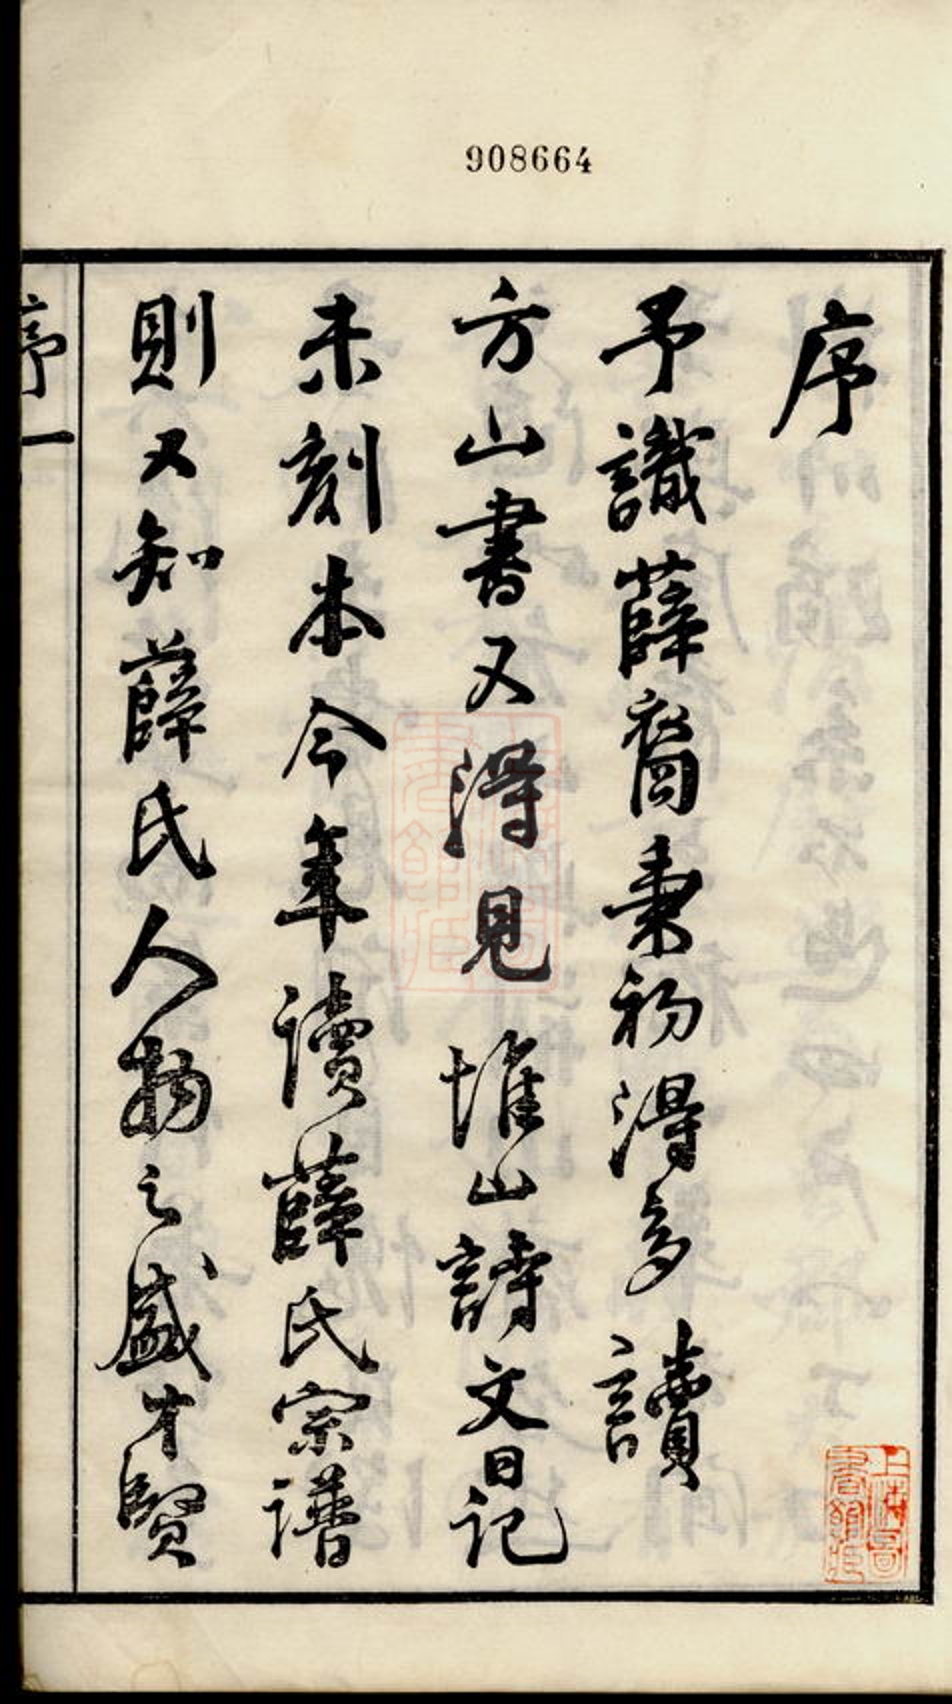 908664
序
予識薛裔秉初得多讀
方山書又得見惟山詩文日記
未刻本今年讀薛氏宗譜
則又知薛氏人物之盛才賢
序一
上海圖書館藏